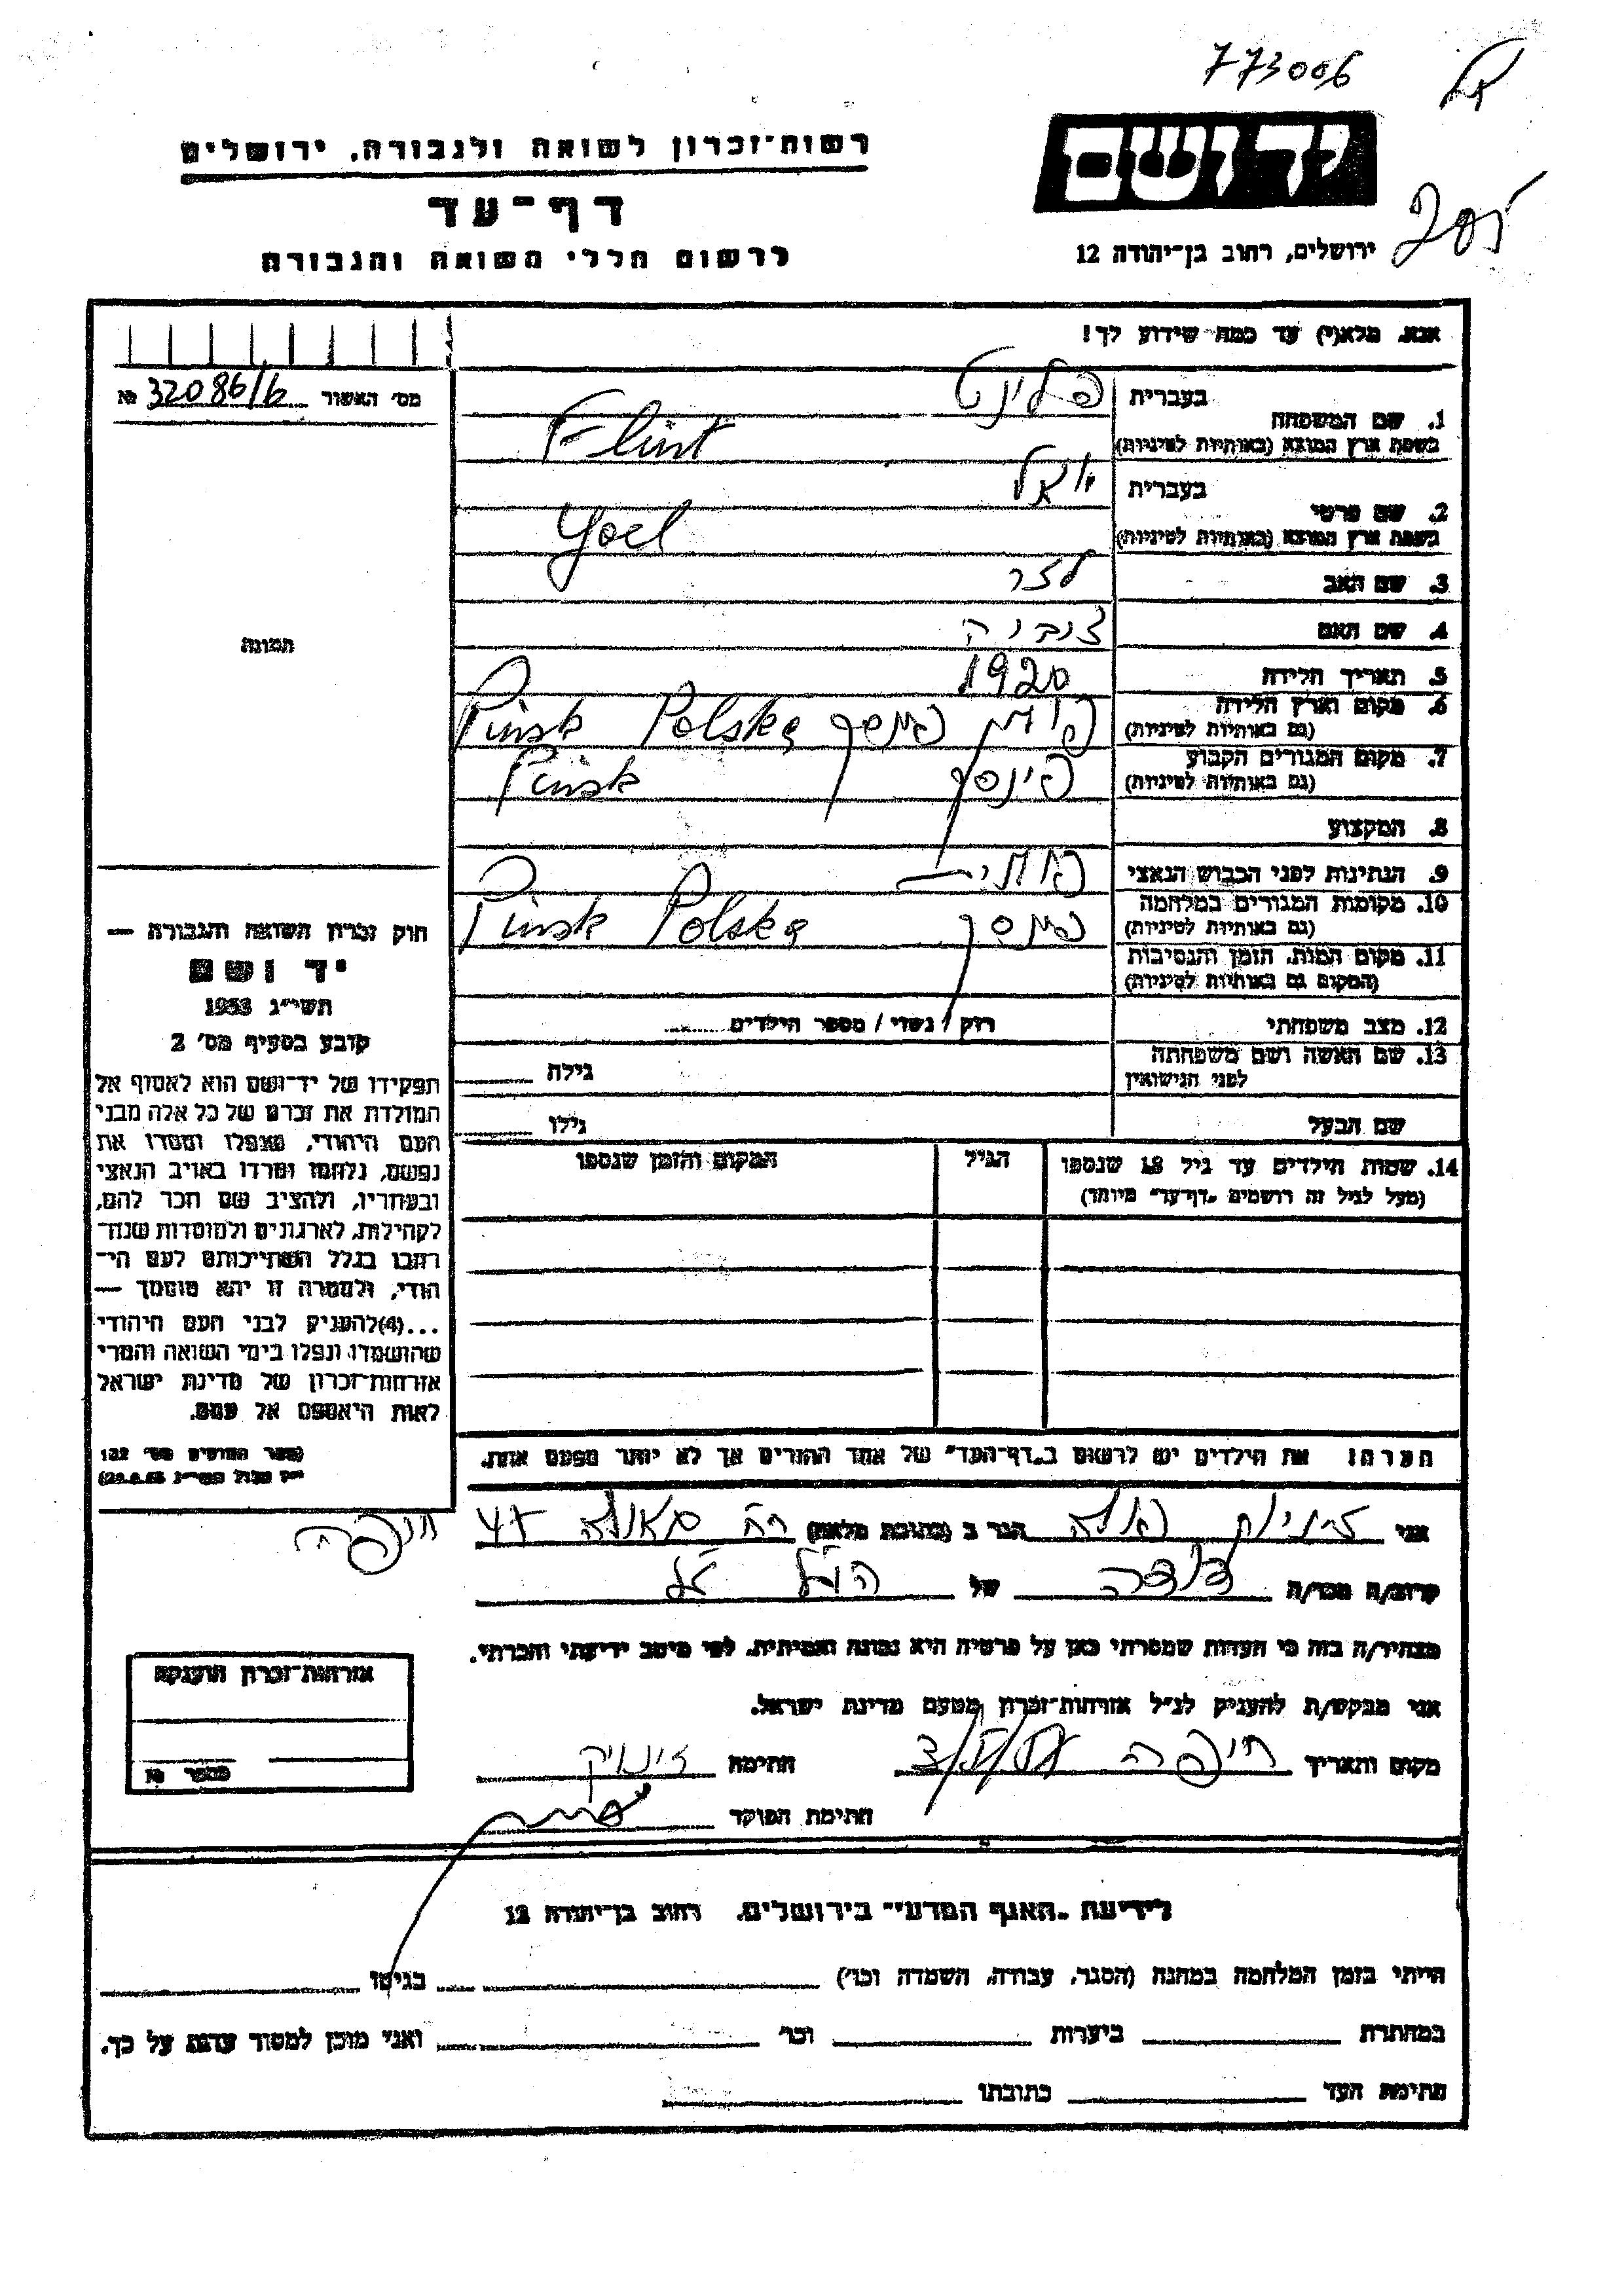 773006
יד ושם
רשות־זכרון לשואה ולגבורה, ירושלים
דף־עד
לרשום חללי השואה והגבורה
ירושלים, רחוב בן־יהודה 12
אנא, מלא(י) עד כמה שידוע לך!
מס׳ האשור 32086/6 №
1. שם המשפחה
בעברית פלינט
בשפת ארץ המוצא (באותיות לטיניות) Flint
2. שם פרטי
בעברית יואל
בשפת ארץ המוצא (באותיות לטיניות) Yoel
3. שם האב לזר
4. שם האם
5. תאריך הלידה 1920
6. מקום וארץ הלידה
(גם באותיות לטיניות) פולין פינסק Pinsk Polska
7. מקום המגורים הקבוע
(גם באותיות לטיניות) פינסק Pinsk
8. המקצוע
9. הנתינות לפני הכבוש הנאצי פולנית
10. מקומות המגורים במלחמה
(גם באותיות לטיניות) פינסק Pinsk Polska
11. מקום המות, הזמן והנסיבות
(המקום גם באותיות לטיניות)
12. מצב משפחתי רוק / נשוי / מספר הילדים
13. שם האשה ושם משפחתה
לפני הנישואין גילה
שם הבעל גילו
14. שמות הילדים עד גיל 18 שנספו הגיל המקום והזמן שנספו
(מעל לגיל זה רושמים „דף־עד״ מיוחד)
תמונה
חוק זכרון השואה והגבורה —
יד ושם
תשי״ג 1953
קובע בסעיף מס׳ 2
תפקידו של יד־ושם הוא לאסוף אל
המולדת את זכרם של כל אלה מבני
העם היהודי, שנפלו ומסרו את
נפשם, נלחמו ומרדו באויב הנאצי
ובעוזריו, ולהציב שם וזכר להם,
לקהילות, לארגונים ולמוסדות שנח־
רבו בגלל השתייכותם לעם הי־
הודי, ולמטרה זו יהא מוסמך —
...(4) להעניק לבני העם היהודי
שהושמדו ונפלו בימי השואה והמרי
אזרחות־זכרון של מדינת ישראל
לאות היאספם אל עמם.
(ספר החוקים מס׳ 132
הערה! את הילדים יש לרשום ב„דף־העד״ של אחד ההורים אך לא יותר מפעם אחת.
אני הגר ב (כתובת מלאה) 47
חיפה
קרוב/ה מכר/ה דודה של הנ״ל
מצהיר/ה בזה כי העדות שמסרתי כאן על פרטיה היא נכונה ואמיתית, לפי מיטב ידיעתי והכרתי.
אני מבקש/ת להעניק לנ״ל אזרחות־זכרון מטעם מדינת ישראל.
מקום ותאריך חיפה חתימה
חתימת הפוקד
אזרחות־זכרון הוענקה
מספר №
לידיעת „האגף המדעי״ בירושלים, רחוב בן־יהודה 12
הייתי בזמן המלחמה במחנה (הסגר, עבודה, השמדה וכו׳) בגיטו
במחתרת ביערות וכו׳ ואני מוכן למסור עדות על כך.
חתימת העד כתובתו